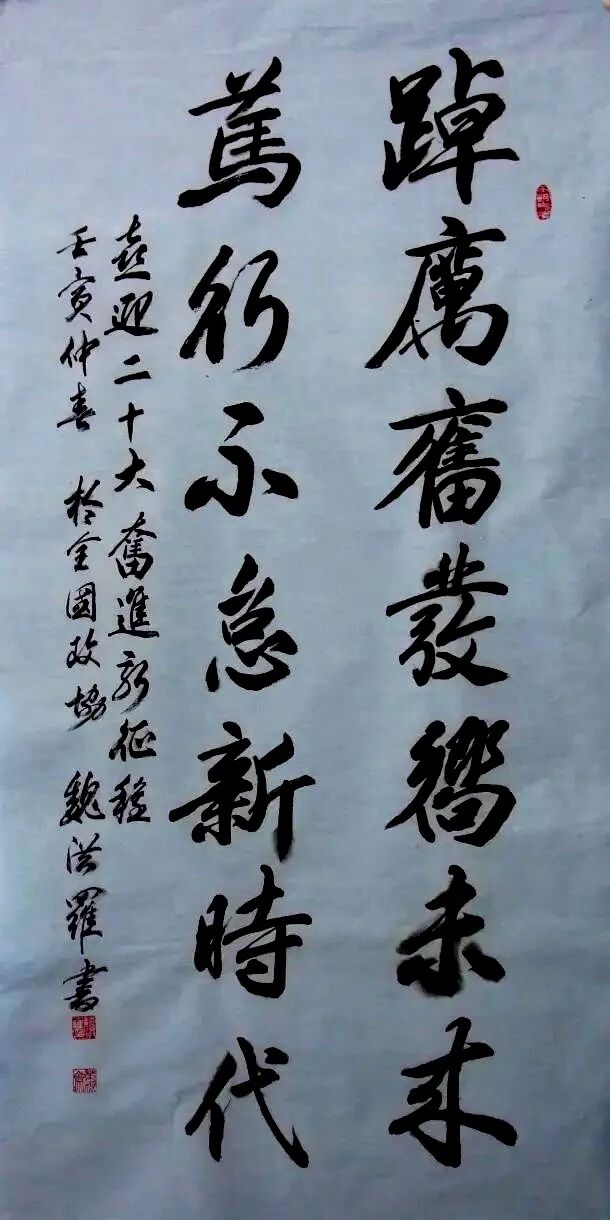 踔厲奮發嚮未來
篤行不怠新時代
喜迎二十大奮進新征程
壬寅仲春 於全國政協 魏洪羅書